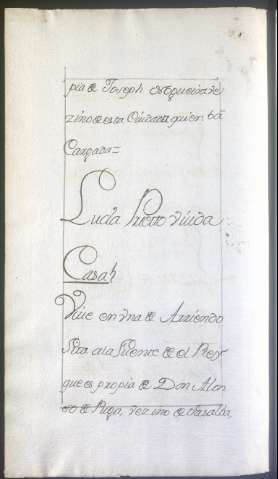 pia de Joseph esBqueira ve
zino de esta Ciudad a quien está
Cargada=
Lucía Prieto viuda
Casa
Vive en vna de Arriendo
Sita a la fuente de el Rey
que es propia de Don Alon
so de Puga, vezino de